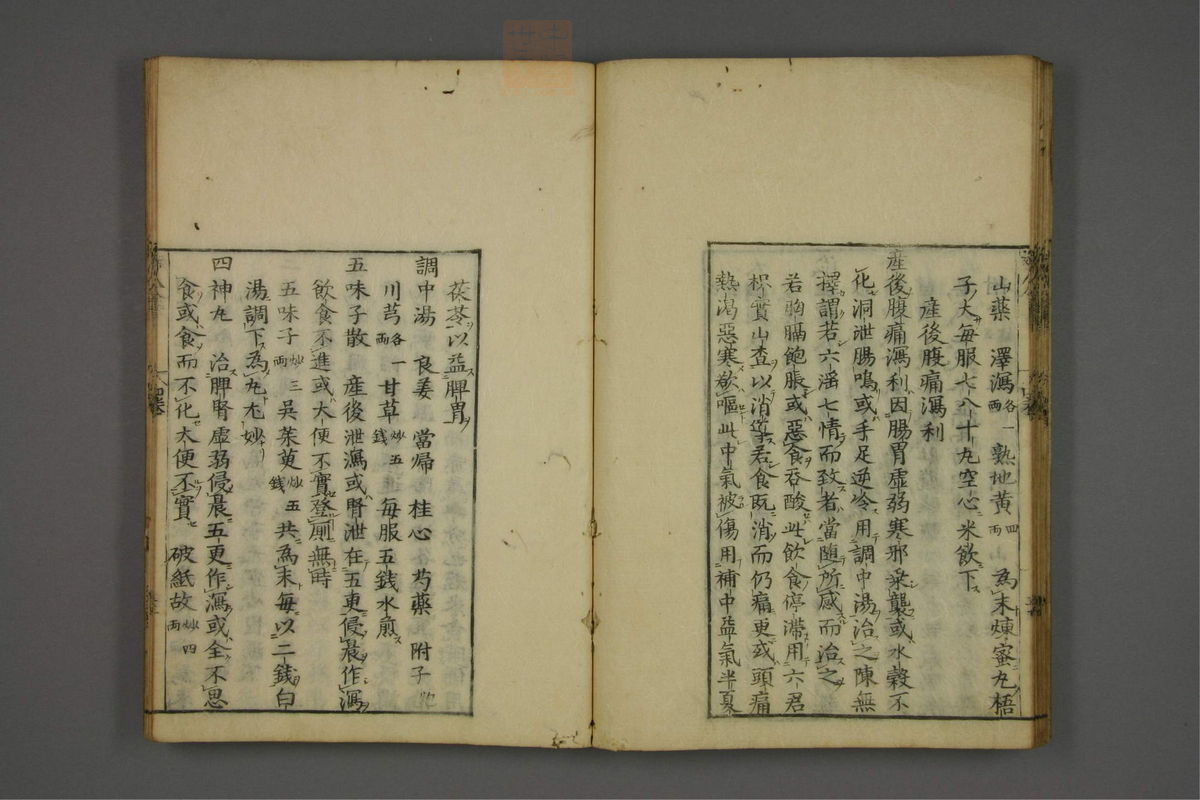 山藥　澤瀉各一兩　熟地黃四兩　山　為末煉蜜丸梧
子大每服七八十丸空心米飲下
產後腹痛瀉利
產後腹痛瀉利因腸胃虛弱寒邪乘襲或水穀不
化洞泄腸鳴或手足逆冷用調中湯治之陳無
擇謂若六淫七情而致者當隨所感而治之
若胸膈飽脹或惡食吞酸此飲食停滯用六君
枳實山查以消導若食既消而仍痛更或頭痛
熱渴惡寒欲嘔此中氣被傷用補中益氣半夏
茯苓以益脾胃
調中湯　良姜　當歸　桂心　芍藥　附子炮
川芎各一兩　甘草炒五錢　每服五錢水煎
五味子散　產後泄瀉或腎泄在五更侵晨作瀉
飲食不進或大便不實登厠無時
五味子炒三兩　吳茱萸炒五錢　共為末每以二錢白
湯調下為丸尤妙
四神丸　治脾腎虛弱侵晨五更作瀉或全不思
食或食而不化大便不實　破紙故炒四兩